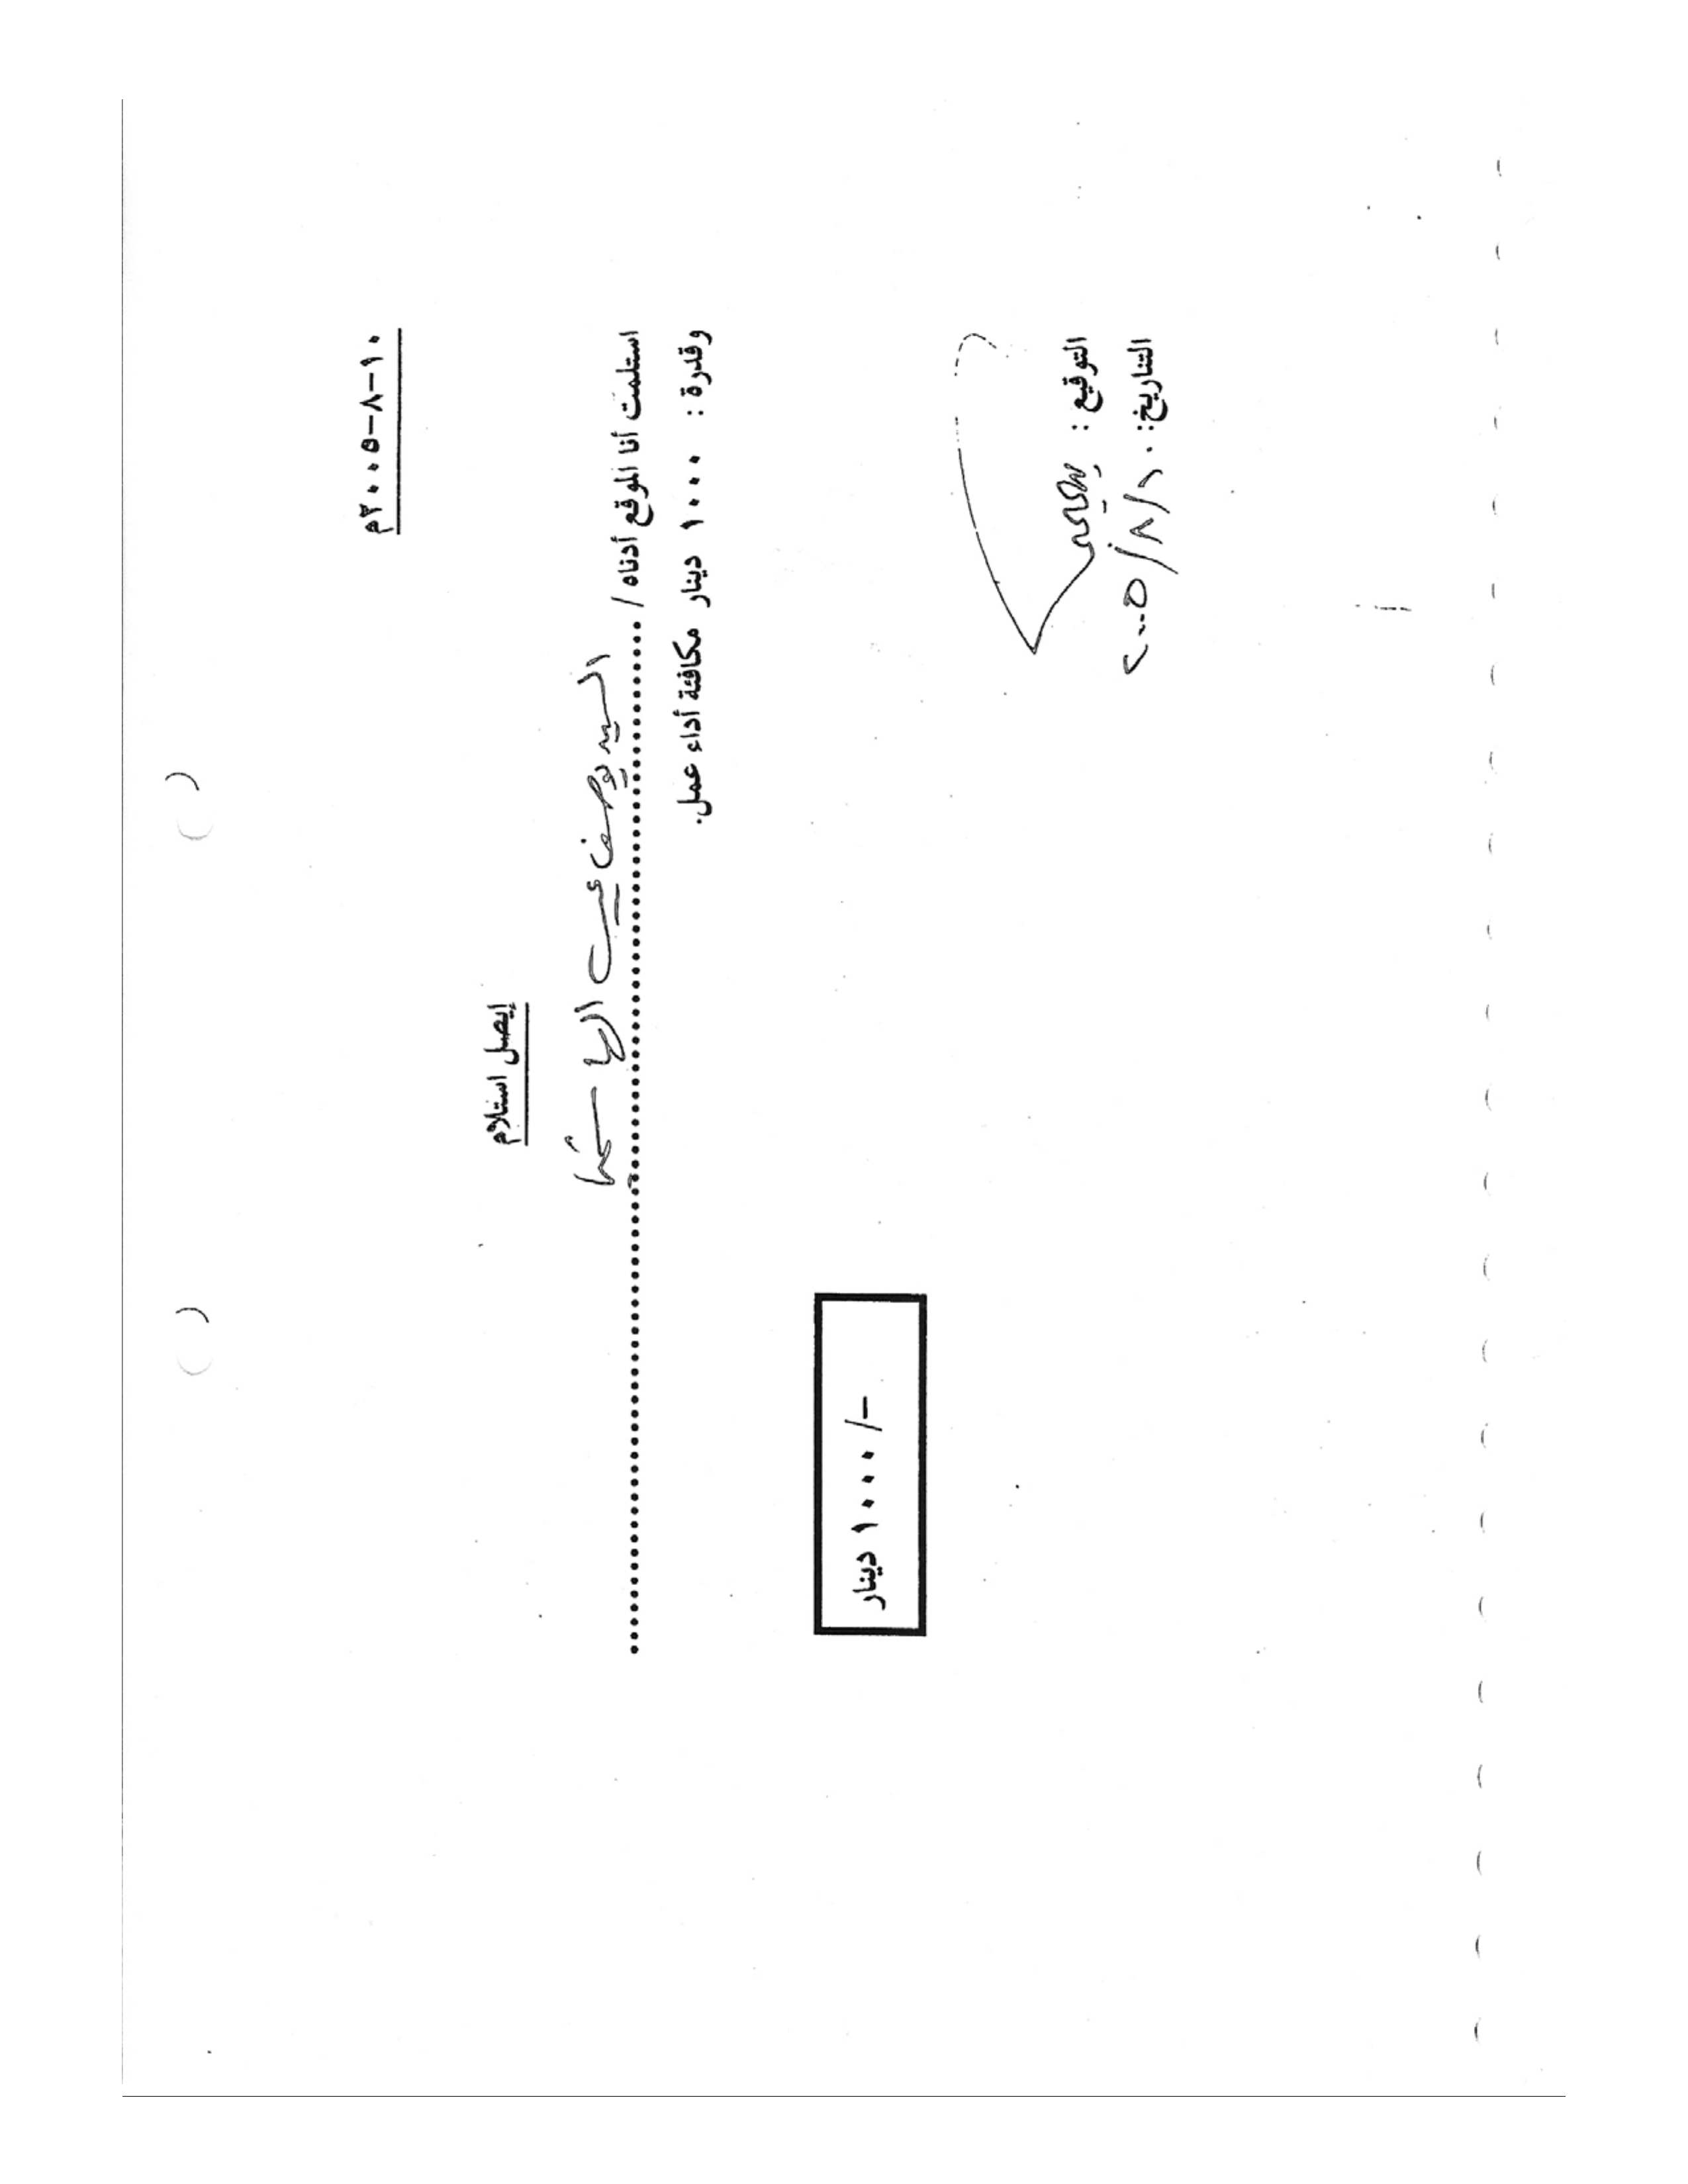 ١٠-٨-٢٠٠٥م
إيصل استلام
استلمت أنا الموقع أدناه / السيد يوصف عيسى الهاشمي
وقدرة : ١٠٠٠ دينار مكافئة أداء عمل.
١٠٠٠/- دينار
التوقيع :
التاريخ: ١٠/٨/٢٠٠٥